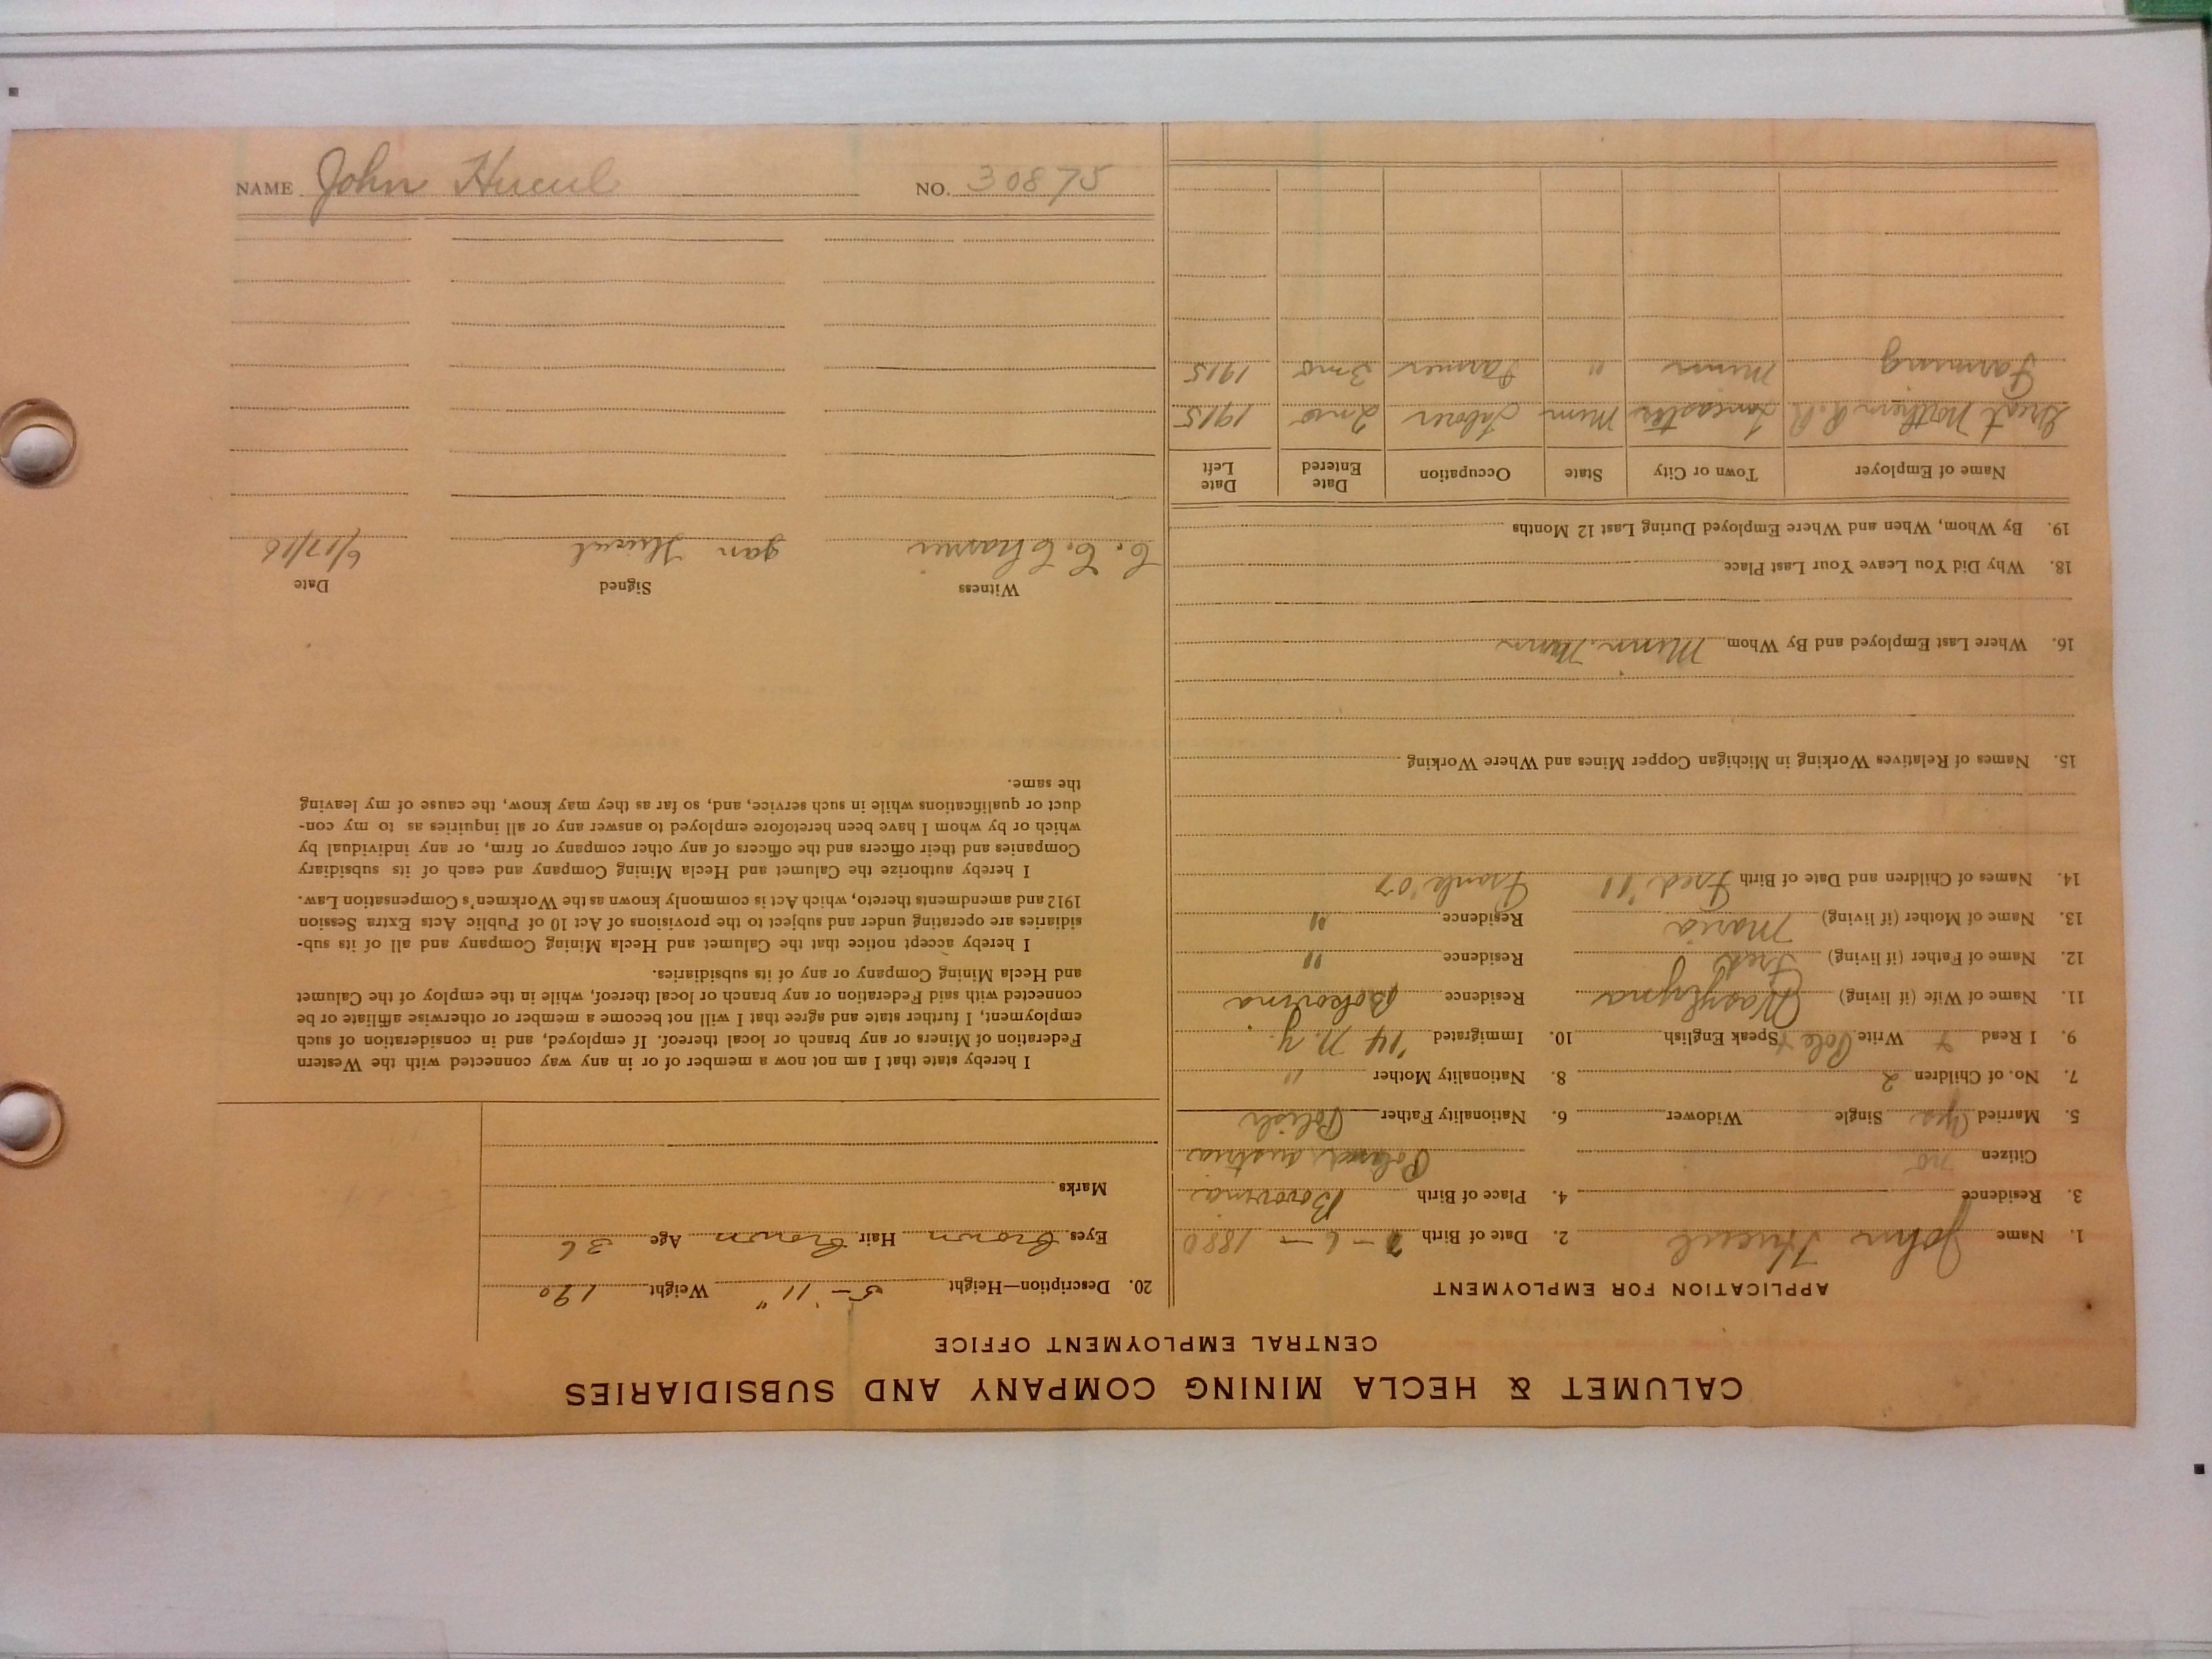 CALUMET & HECLA MINING COMPANY AND SUBSIDIARIES
CENTRAL EMPLOYMENT OFFICE
APPLICATION FOR EMPLOYMENT
1. Name John Hucul 2. Date of Birth 7-6-1880
3. Residence 4. Place of Birth
Citizen no Poland Austria
5. Married Yes Single Widower 6. Nationality Father Polish
7. No. of Children 2 8. Nationality Mother "
9. I Read + Write Pole + Speak English 10. Immigrated '14 N.Y.
11. Name of Wife (if living) Residence Bokovina
12. Name of Father (if living) Fred Residence "
13. Name of Mother (if living) Maria Residence "
14. Names of Children and Date of Birth Fred '11 Frank '07
15. Names of Relatives Working in Michigan Copper Mines and Where Working
16. Where Last Employed and By Whom Minn.
18. Why Did You Leave Your Last Place
19. By Whom, When and Where Employed During Last 12 Months
Name of Employer Town or City State Occupation Date Entered Date Left
Great Northern R.R. Lancaster Minn Laborer 2 mo 1915
Farming Minn " Farmer 3 mo 1915
20. Description—Height 5-11" Weight 190
Eyes Brown Hair Brown Age 36
Marks
I hereby state that I am not now a member of or in any way connected with the Western
Federation of Miners or any branch or local thereof. If employed, and in consideration of such
employment, I further state and agree that I will not become a member or otherwise affiliate or be
connected with said Federation or any branch or local thereof, while in the employ of the Calumet
and Hecla Mining Company or any of its subsidiaries.
I hereby accept notice that the Calumet and Hecla Mining Company and all of its sub-
sidiaries are operating under and subject to the provisions of Act 10 of Public Acts Extra Session
1912 and amendments thereto, which Act is commonly known as the Workmen's Compensation Law.
I hereby authorize the Calumet and Hecla Mining Company and each of its subsidiary
Companies and their officers and the officers of any other company or firm, or any individual by
which or by whom I have been heretofore employed to answer any or all inquiries as to my con-
duct or qualifications while in such service, and, so far as they may know, the cause of my leaving
the same.
Witness Signed Date
Jan Hucul 6/17/16
NAME John Hucul NO. 30875